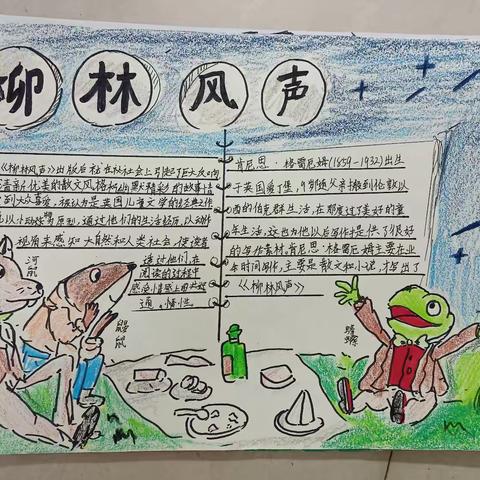 柳林风声
《柳林风声》出版后在社会上引起了巨大反响
清新优美的散文风格和幽默精彩的故事情
到大众喜爱,被认为是英国儿童文学的经典之作
以小动物为原型,通过他们的生活经历,以动物
视角来感知大自然和人类社会,使读者
通过他们,在
阅读的过程中
感受情感上的共
通、愉悦。
肯尼思·格雷厄姆(1859-1932)出生
于英国爱丁堡,9岁随父亲搬到伦敦以
西的伯克群生活,在那度过了美好的童
年生活,这也为他以后写作提供了很好
的写作素材,肯尼思·格雷厄姆主要在业
余时间创作,主要是散文和小说,才写出了
《柳林风声》
河鼠
鼹鼠
蟾蜍